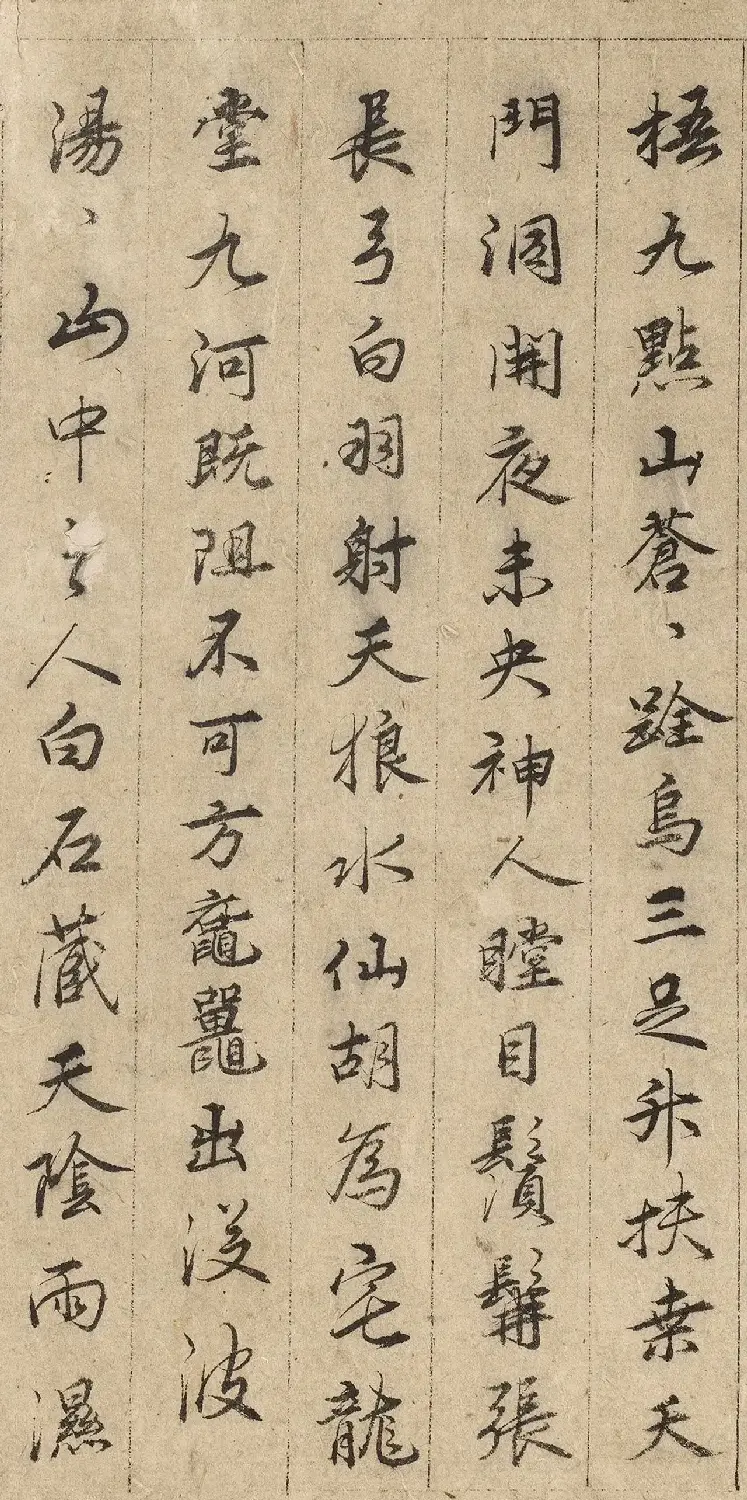 梧九點山蒼、跧烏三足升扶桒天
門洞開夜未央神人瞠目鬚髯張
長弓白羽射天狼水仙胡為宅龍
堂九河既阻不可方黿鼉出没波
湯、山中之人白石藏天陰雨濕